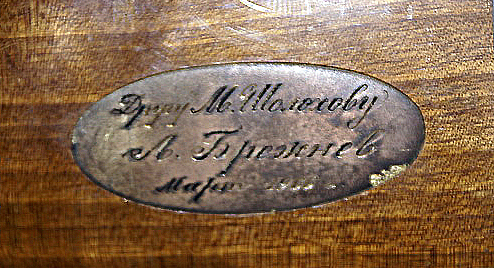 Другу М. Шолохову
Л. Брежнев
Март